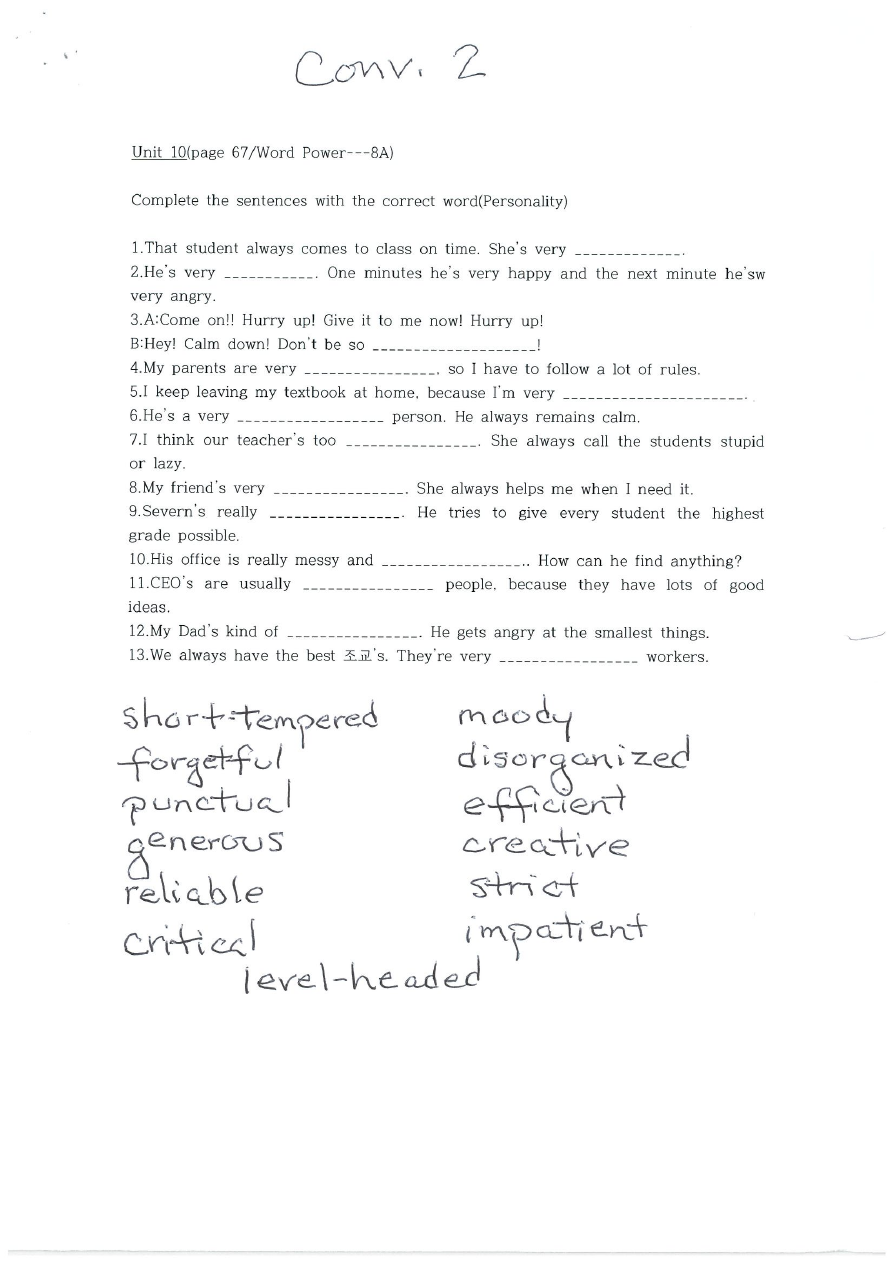 Conv. 2
Unit 10(page 67/Word Power---8A)
Complete the sentences with the correct word(Personality)
1.That student always comes to class on time. She's very _____________.
2.He's very ___________. One minutes he's very happy and the next minute he'sw
very angry.
3.A:Come on!! Hurry up! Give it to me now! Hurry up!
B:Hey! Calm down! Don't be so ____________________!
4.My parents are very ________________, so I have to follow a lot of rules.
5.I keep leaving my textbook at home, because I'm very ______________________.
6.He's a very __________________ person. He always remains calm.
7.I think our teacher's too ________________. She always call the students stupid
or lazy.
8.My friend's very ________________. She always helps me when I need it.
9.Severn's really ________________. He tries to give every student the highest
grade possible.
10.His office is really messy and __________________.. How can he find anything?
11.CEO's are usually ________________ people, because they have lots of good
ideas.
12.My Dad's kind of ________________. He gets angry at the smallest things.
13.We always have the best 조교's. They're very _________________ workers.
short-tempered moody
forgetful disorganized
punctual efficient
generous creative
reliable strict
critical impatient
level-headed